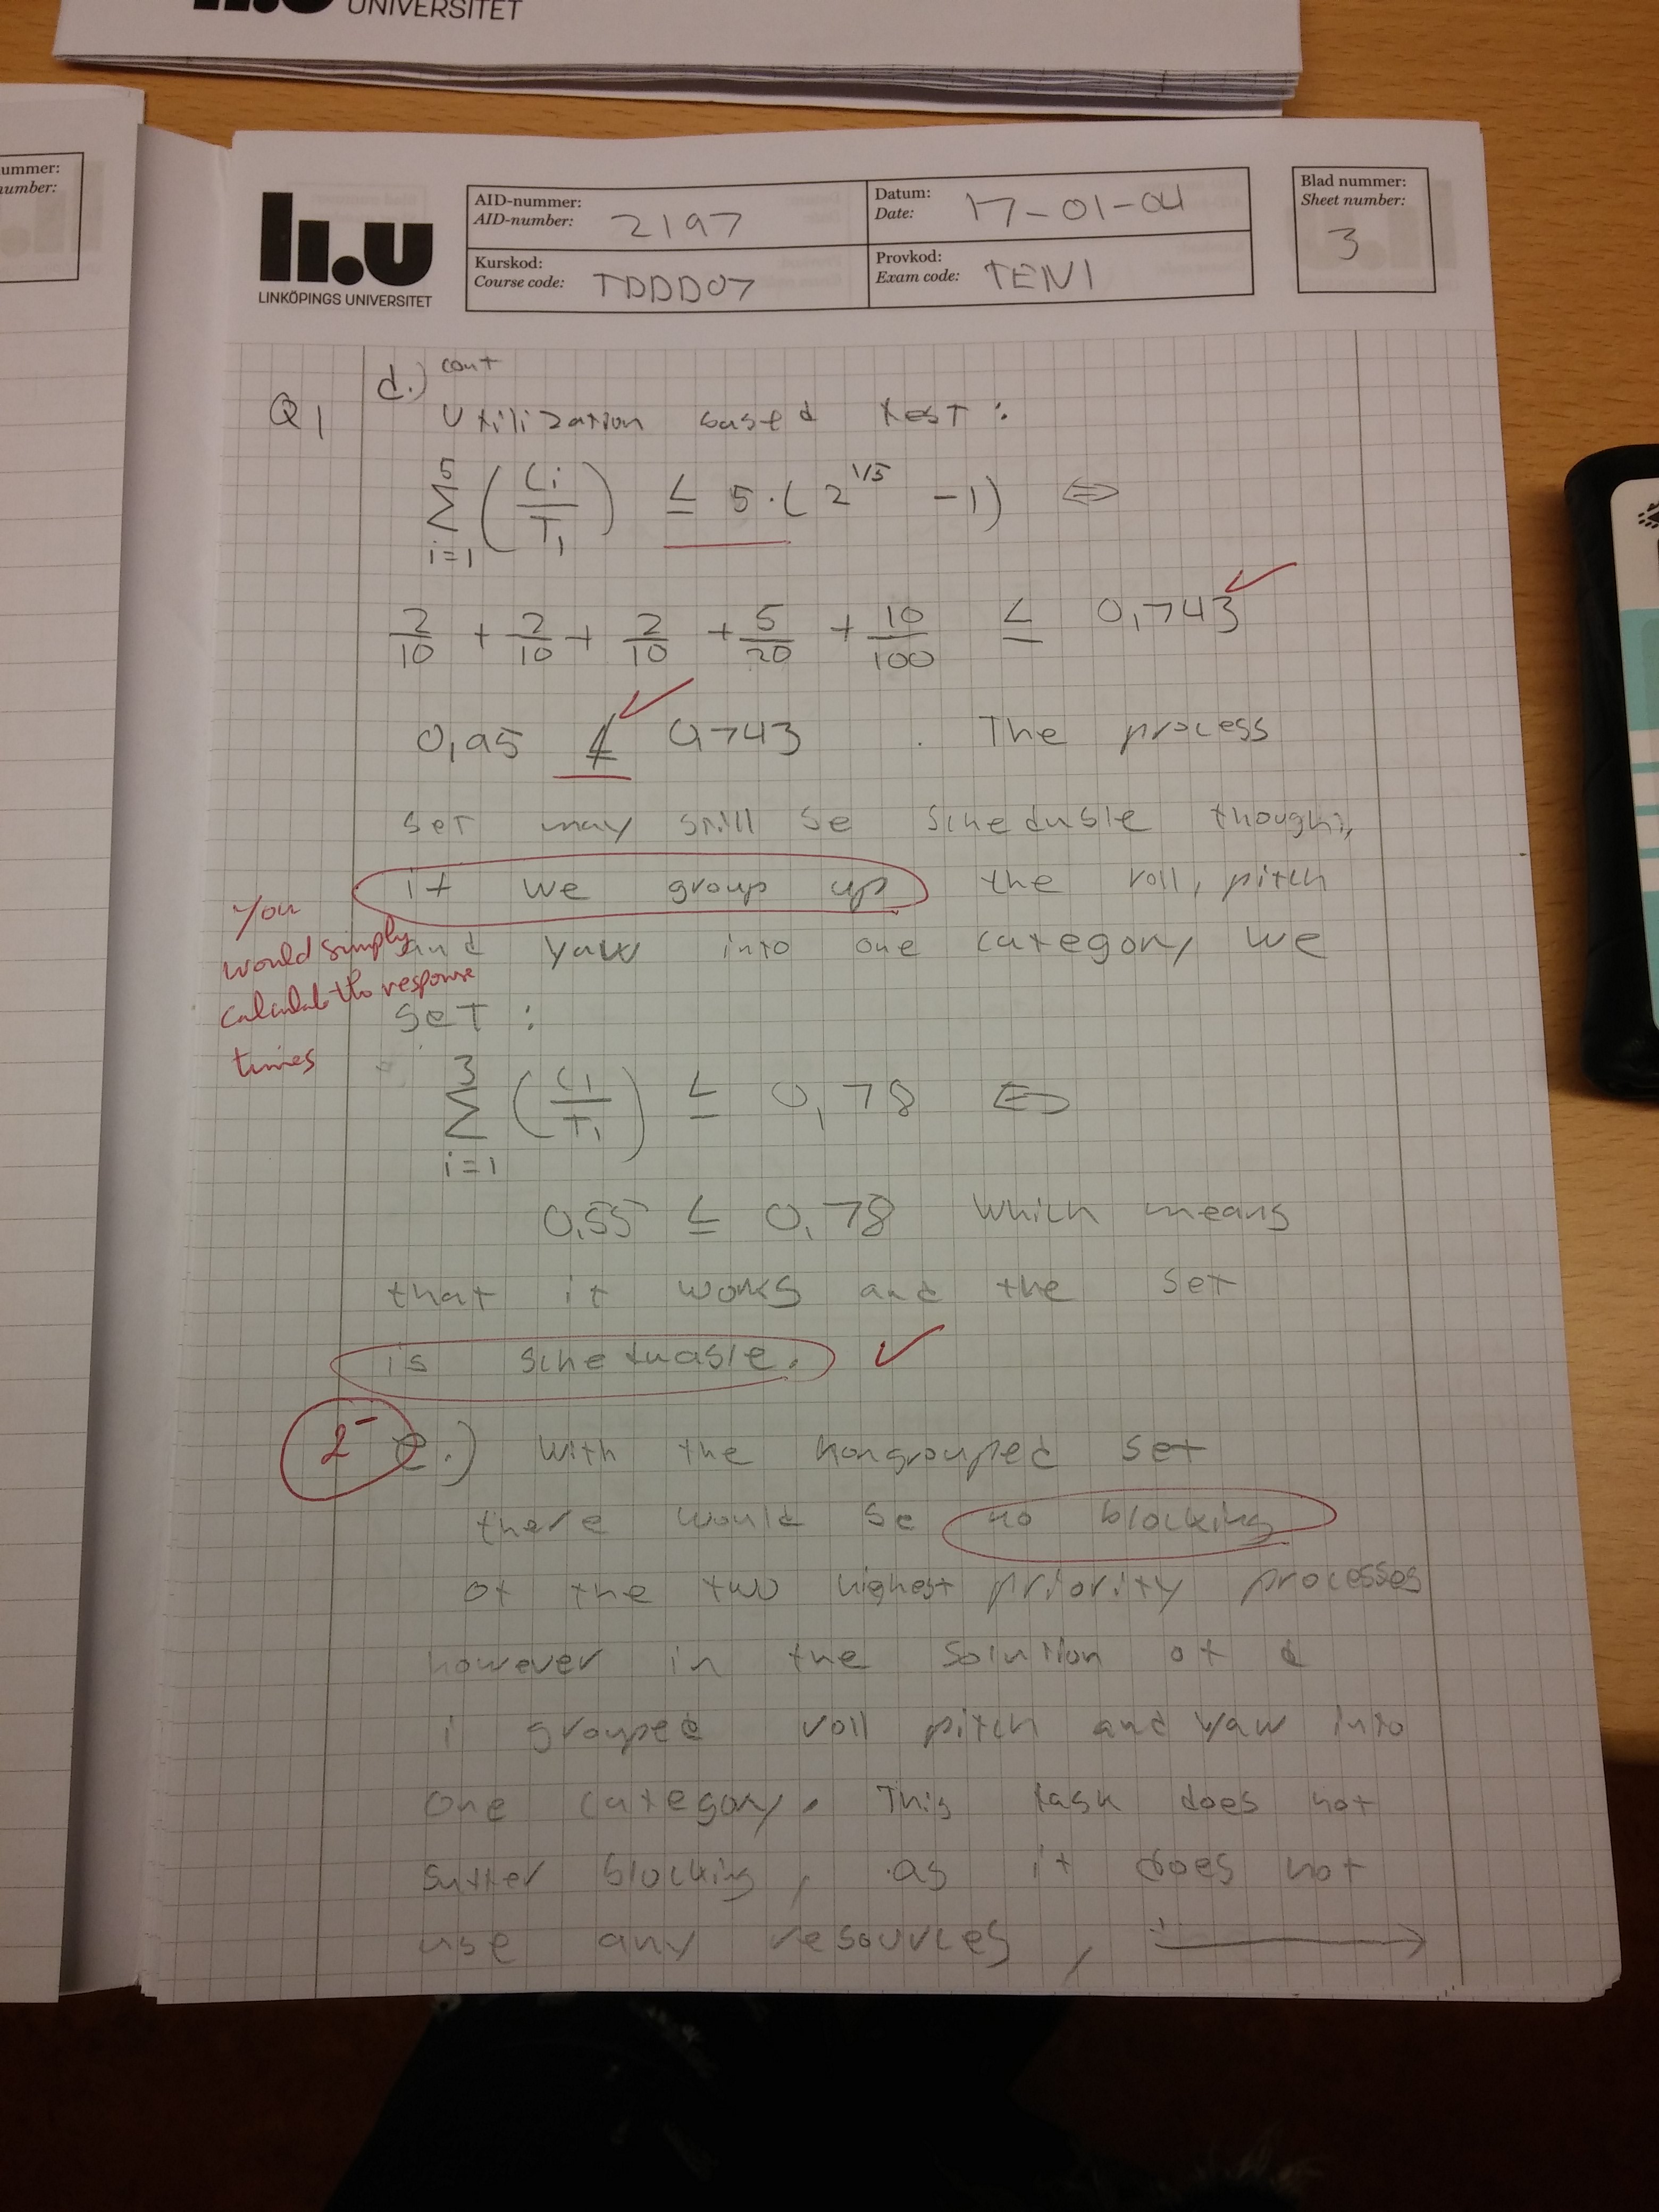 li.u UNIVERSITET
ummer:
number:
li.u
LINKÖPINGS UNIVERSITET
AID-nummer:
AID-number: 2197
Datum:
Date: 17-01-04
Blad nummer:
Sheet number:
3
Kurskod:
Course code: TDDD07
Provkod:
Exam code: TEN1
Q1 d.) cont
Utilization based test:
5 Σ i=1 (Ci/Ti) ≤ 5·(2^1/5 -1) ⇔
2/10 + 2/10 + 2/10 + 5/20 + 10/100 ≤ 0,743
0,95 ≰ 0,743 . The process
set may still be scheduble though,
if we group up the roll, pitch
and yaw into one category we
get:
You
would simply
calculate the response
times
3 Σ i=1 (Ci/Ti) ≤ 0,78 ⇔
0,55 ≤ 0,78 which means
that it works and the set
is scheduable.
2-
e.) With the nongrouped set
there would be no blocking
of the two highest priority processes
however in the solution of d
i grouped roll pitch and yaw into
one category. This task does not
suffer blocking, as it does not
use any resources,